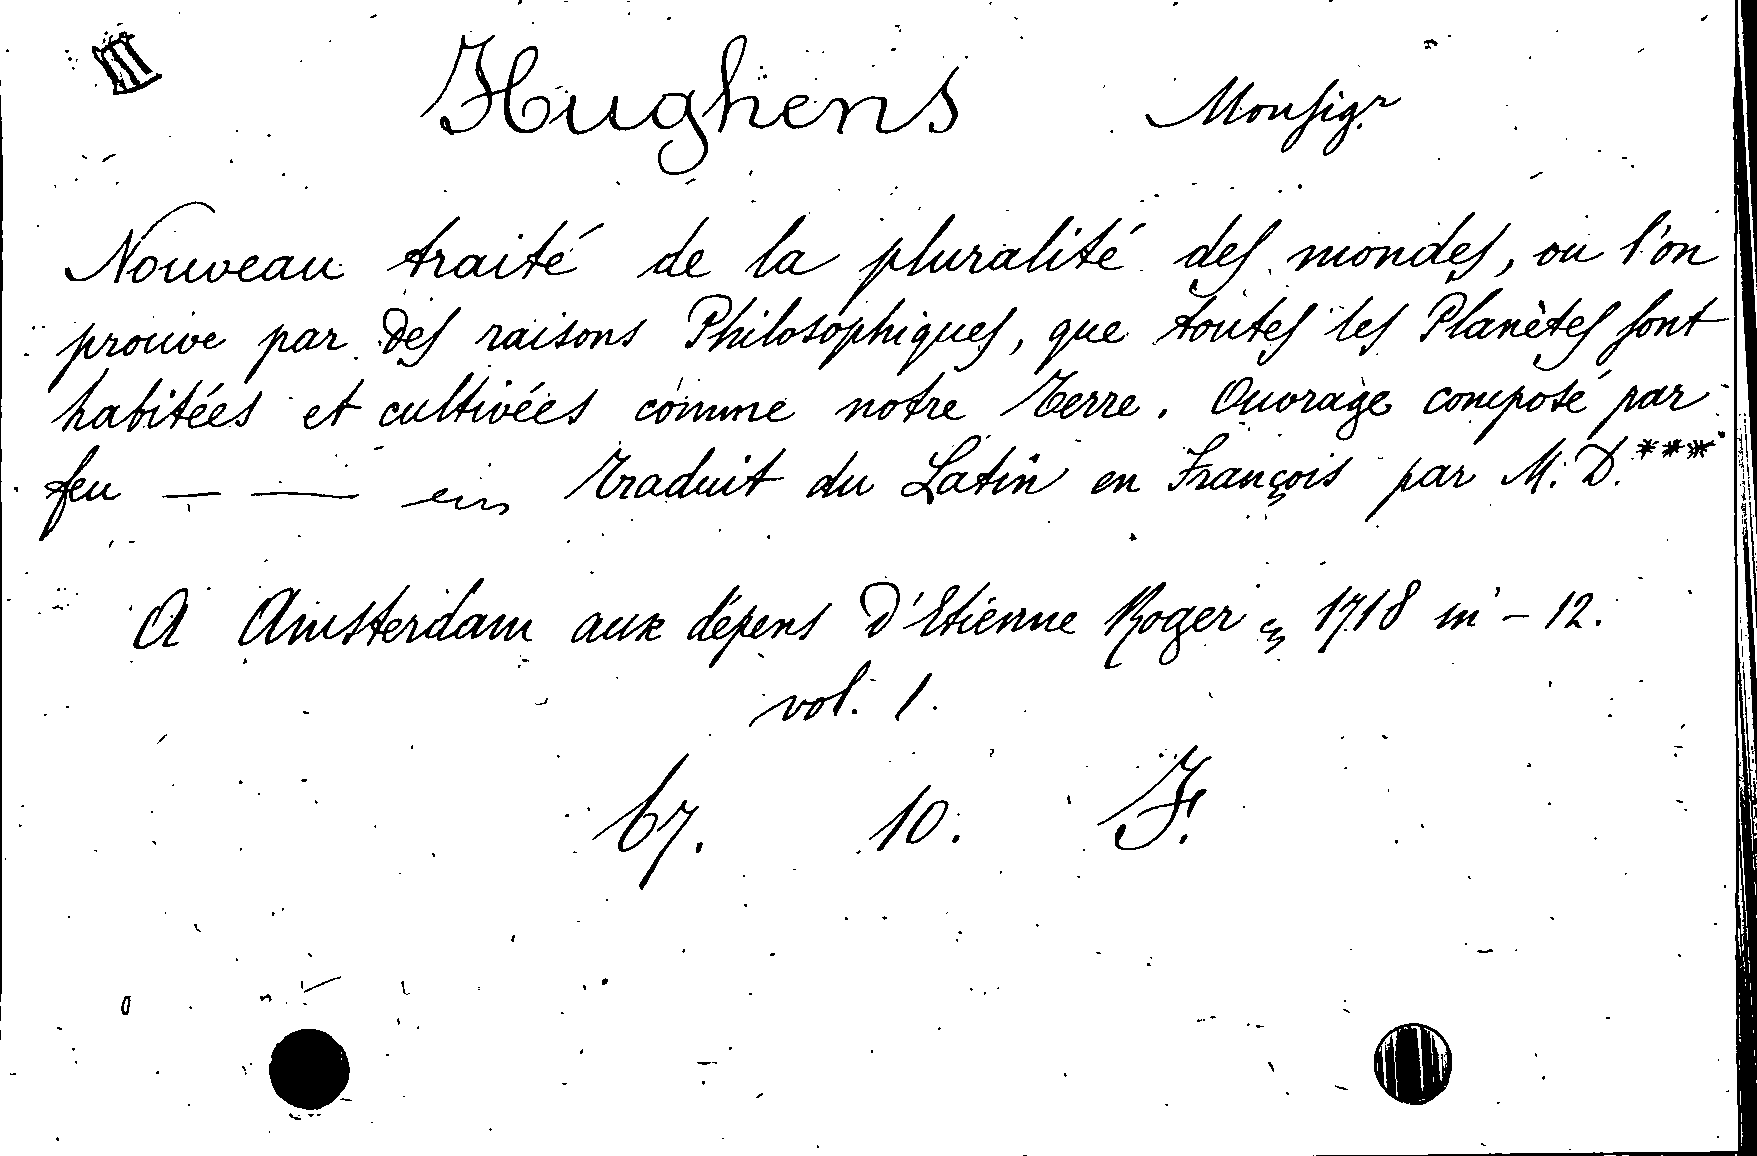 III
Hughens Monsigr
Nouveau traité de la pluralité des mondes, ou l'on
prouve par des raisons Philosophiques, que toutes les Planètes sont
habitées et cultivées comme notre Terre. Ouvrage composé par
feu — — Traduit du Latin en François par M. D.***
A Amsterdam aux dépens d'Etienne Roger 1718 in - 12.
vol. 1.
67. 10. F.